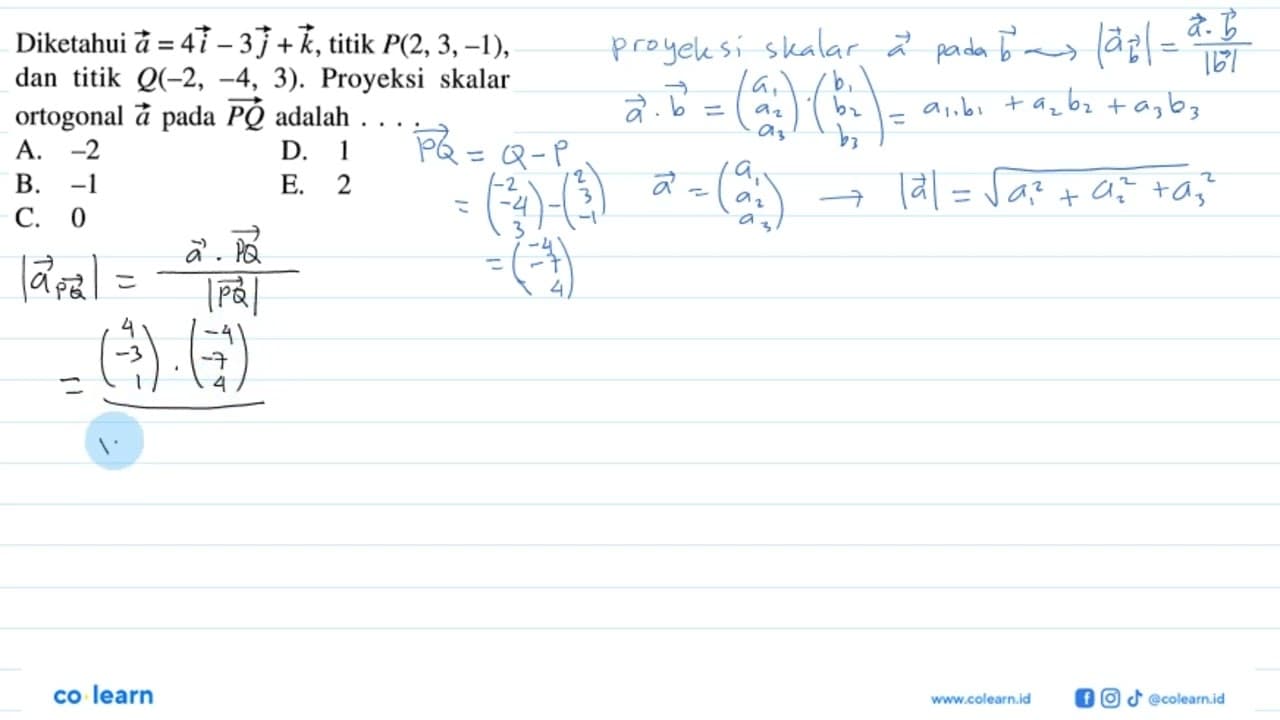 Diketahui a⃗ = 4i⃗ – 3j⃗ + k⃗, titik P(2, 3, –1),
dan titik Q(–2, –4, 3). Proyeksi skalar
ortogonal a⃗ pada PQ⃗ adalah . . . .
A. –2 D. 1
B. –1 E. 2
C. 0
proyeksi skalar a⃗ pada b⃗ → |a⃗_b⃗| = (a⃗ . b⃗)/|b⃗|
a⃗ . b⃗ = (a₁ a₂ a₃) . (b₁ b₂ b₃) = a₁.b₁ + a₂b₂ + a₃b₃
PQ⃗ = Q – P
= (–2 –4 3) – (2 3 –1)
= (–4 –7 4)
a⃗ = (a₁ a₂ a₃) → |a⃗| = √(a₁² + a₂² + a₃²)
|a⃗_PQ⃗| = (a⃗ . PQ⃗)/|PQ⃗|
= (4 –3 1) . (–4 –7 4)
co learn
www.colearn.id @colearn.id